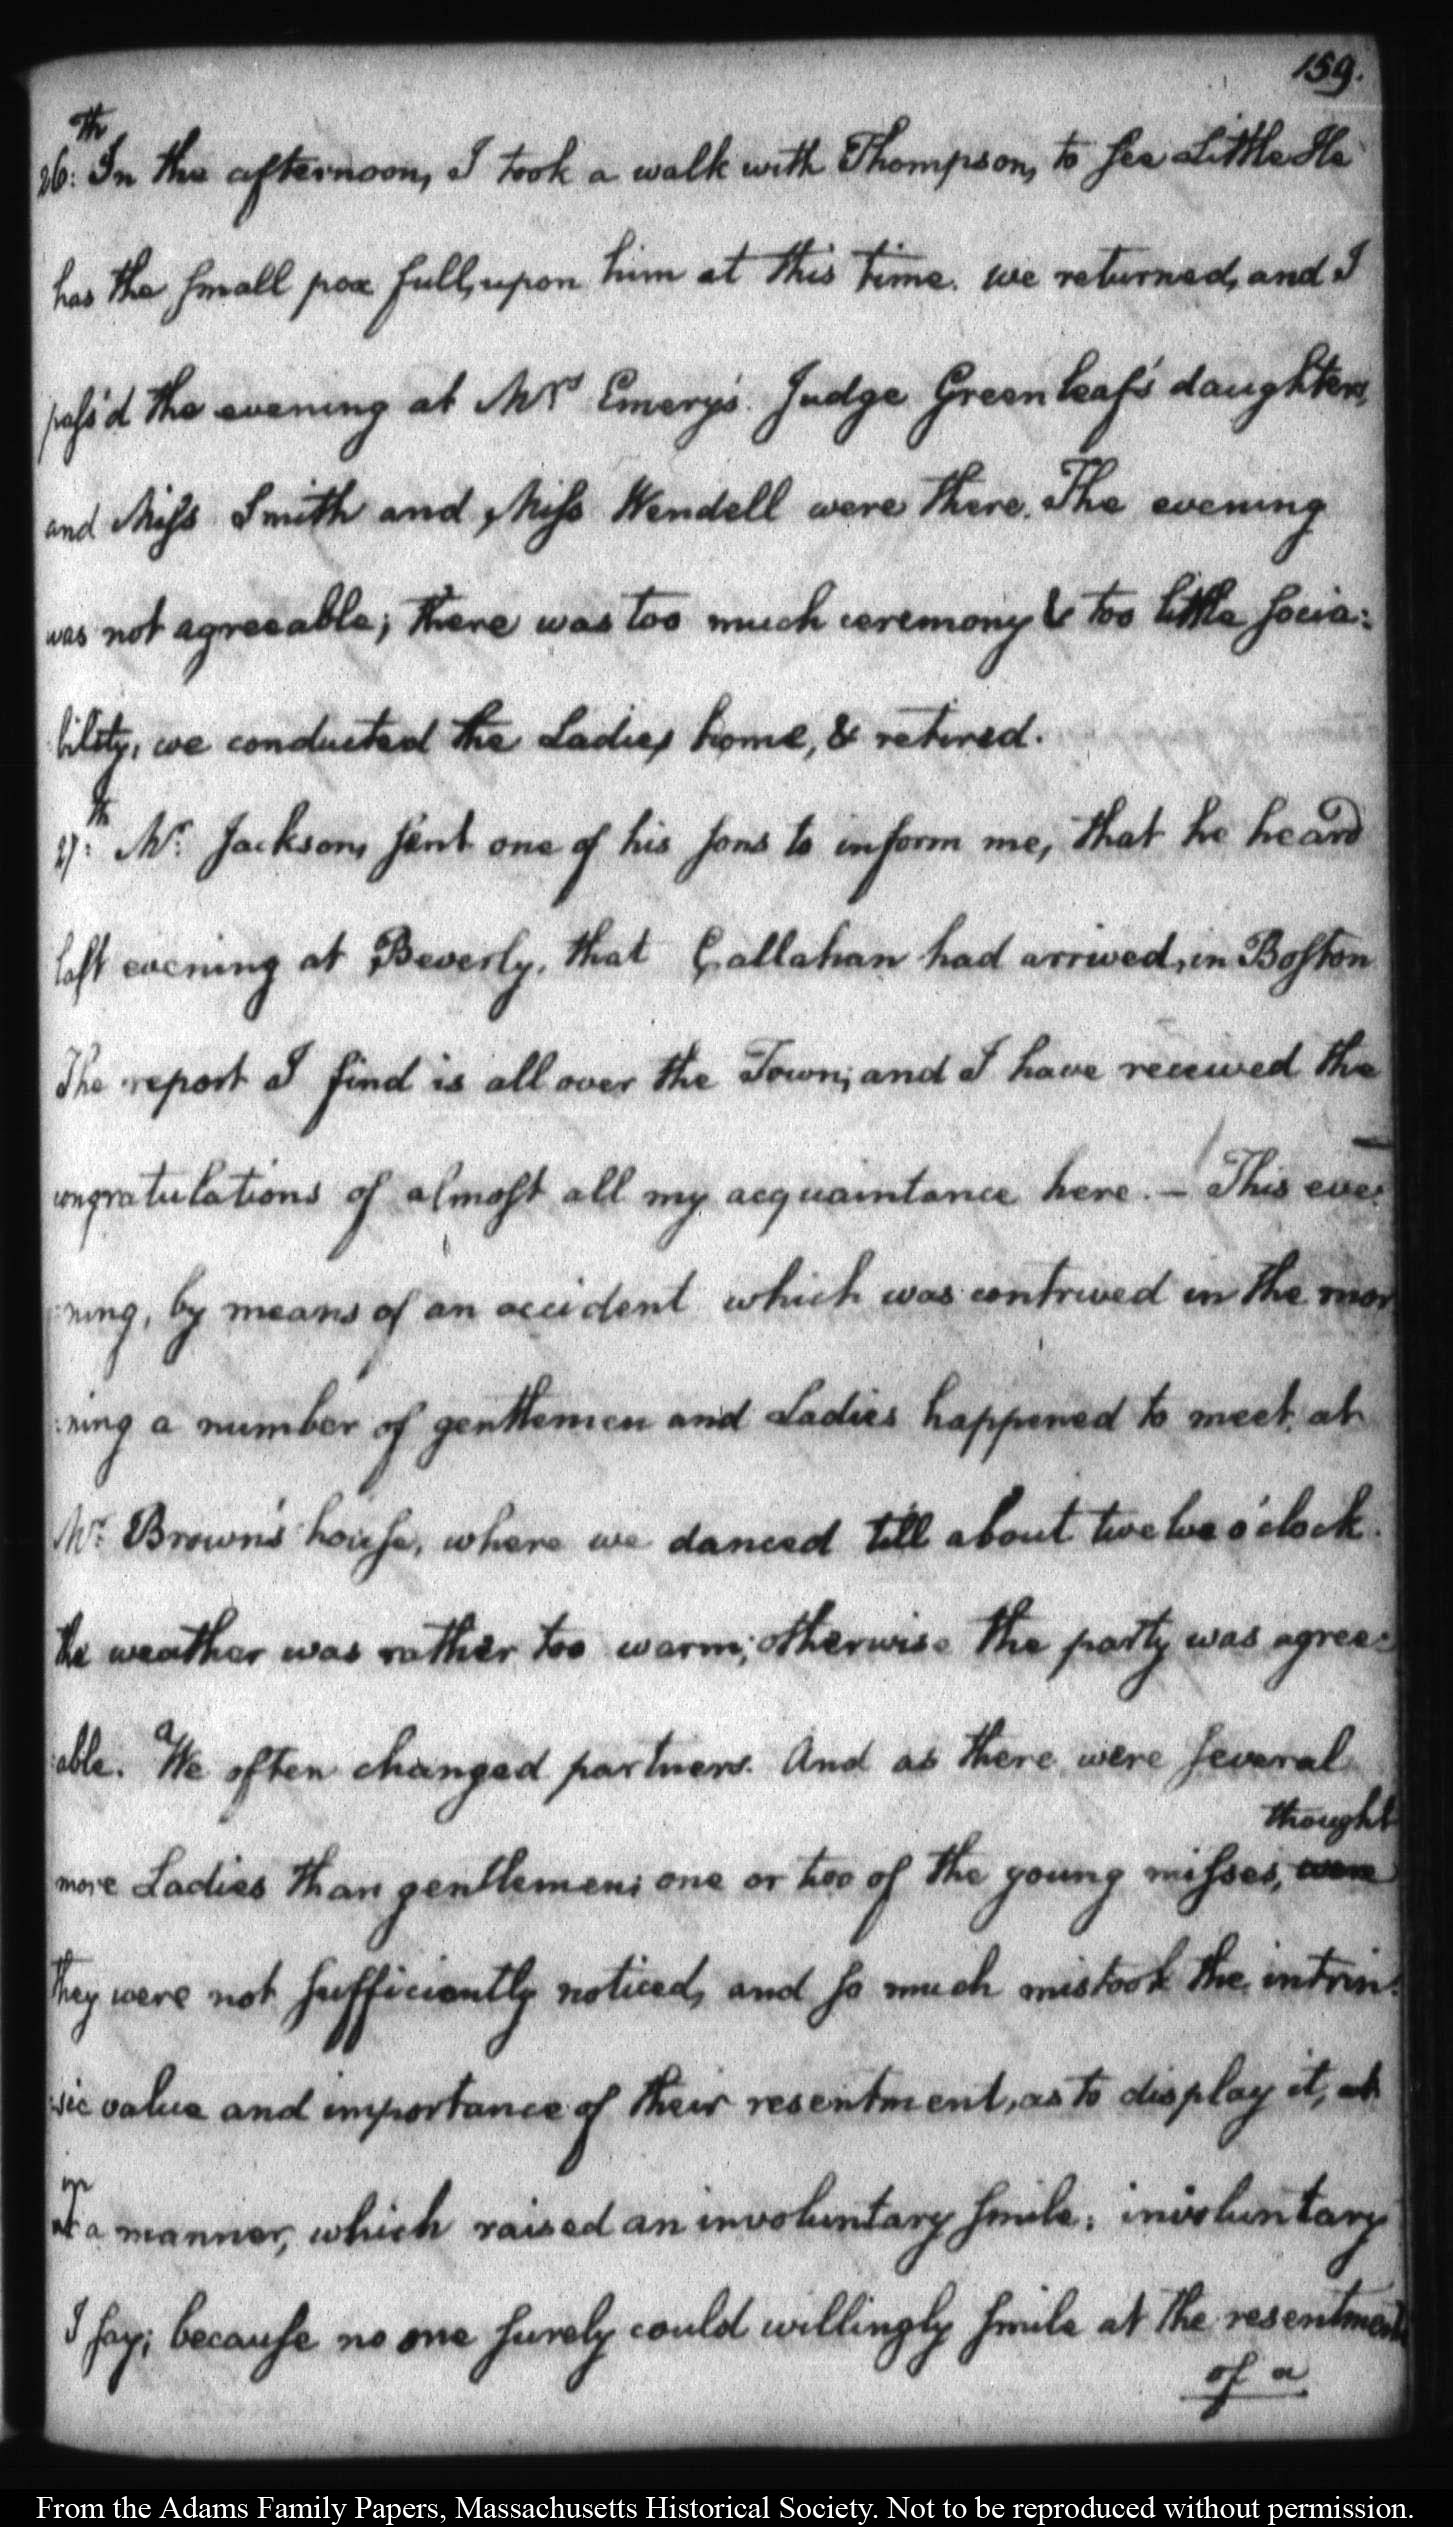 159.
26.th In the afternoon, I took a walk with Thompson, to see Little He
has the small pox full, upon him at this time. we returned, and I
pass'd the evening at Mrs Emery's. Judge Greenleaf's daughters,
and Miss Smith and Miss Wendell were there. The evening
was not agreeable; there was too much ceremony & too little socia:
:bility, we conducted the Ladies home, & retired.
27:th Mr. Jackson, sent one of his sons to inform me, that he heard
last evening at Beverly, that Callahan had arrived, in Boston
The report I find is all over the Town; and I have received the
congratulations of almost all my acquaintance here. — This eve:
:ning, by means of an accident which was contrived in the mor
:ning a number of gentlemen and Ladies happened to meet, at
Mr. Brown's house, where we danced till about twelve o'clock.
the weather was rather too warm; otherwise the party was agree:
:able. a We often changed partners. And as there were several
thought
more Ladies than gentlemen; one or two of the young misses, were
they were not sufficiently noticed, and so much mistook the intrin:
:sic value and importance of their resentment, as to display it, at
in
at a manner, which raised an involuntary smile; involuntary
I say; because no one surely could willingly smile at the resentment
of a
From the Adams Family Papers, Massachusetts Historical Society. Not to be reproduced without permission.